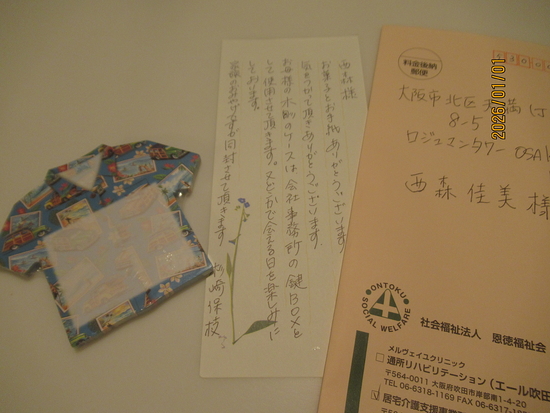 西森様
お菓子とお手紙ありがとうございます
気をつかって頂きありがとうございます。
お母様の木彫のケースは会社事務所の鍵BOXと
して使用させて頂きます。又どこかで会える日を楽しみに
しております。
のおみやげですが同封させて頂きます
料金後納
郵便
大阪市北区天満1丁
8-5
ロジュマンタワー OSAK
西森佳美様
ONTOKU
SOCIAL WELFARE
社会福祉法人 恩徳福祉会
メルヴェイユクリニック
通所リハビリテーション(エール吹田
〒564-0011 大阪府吹田市岸部南1-4-20
TEL 06-6318-1169 FAX 06-6317-
居宅介護支援事業
2026/01/01